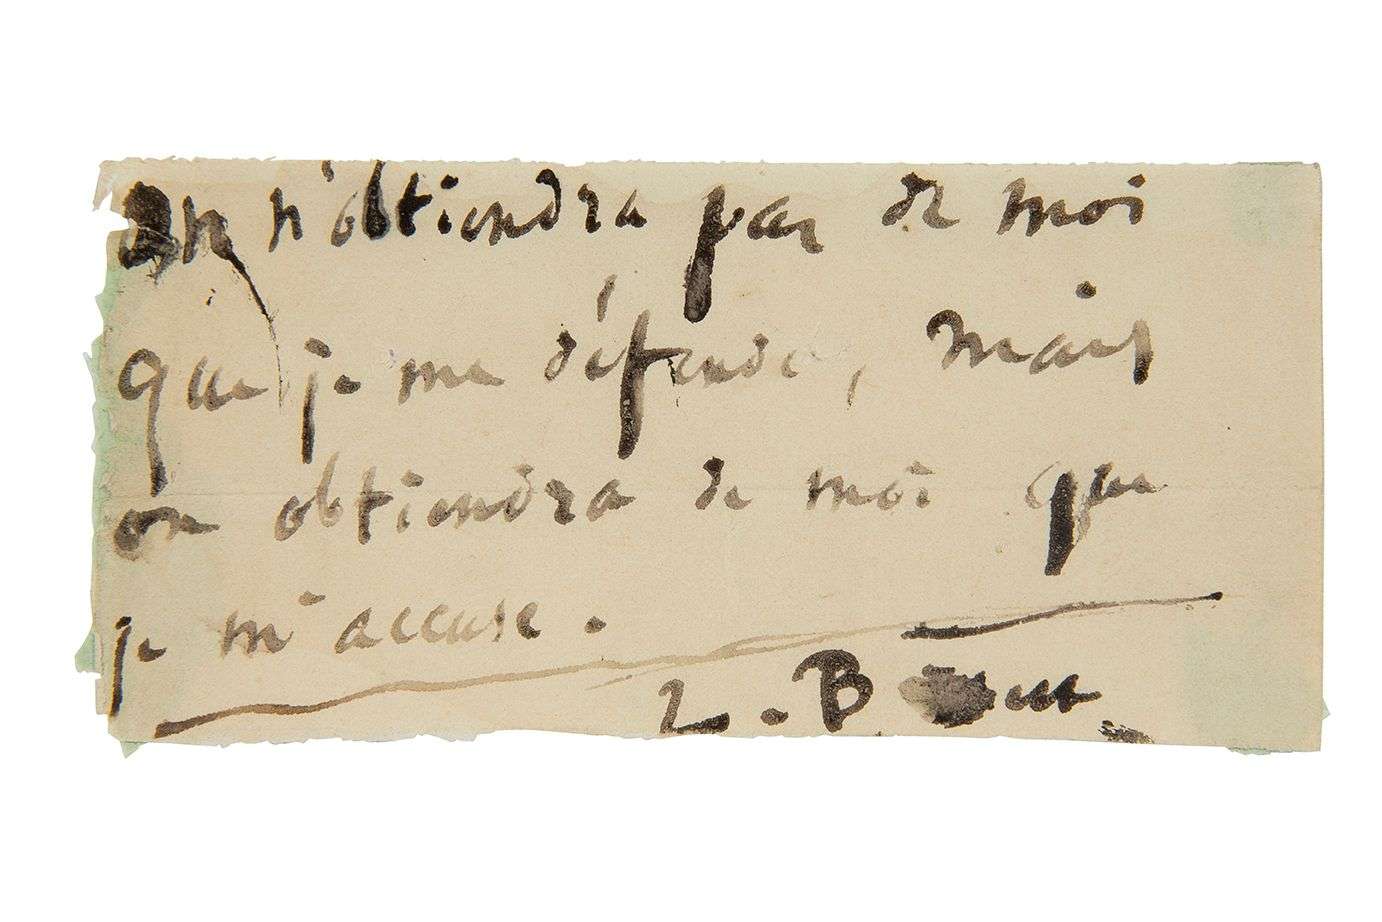 on n'obtiendra pas de moi
que je me défende, mais
on obtiendra de moi que
je m'accuse.
L. B